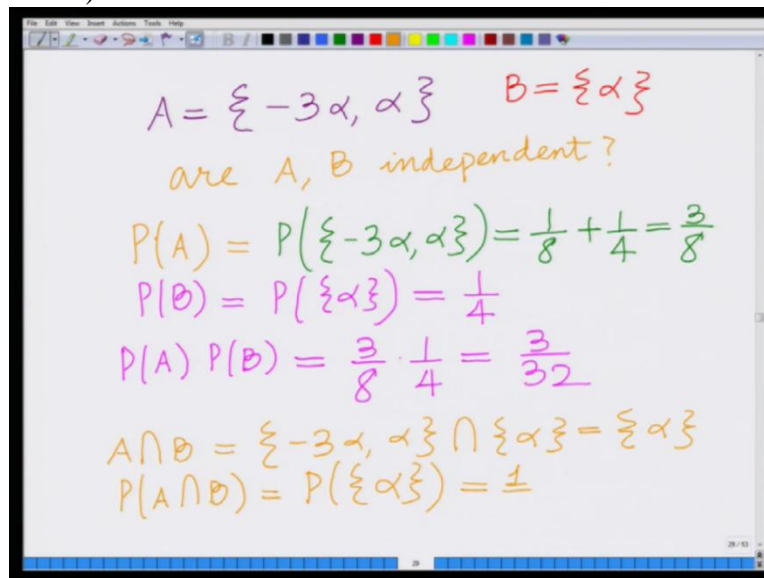 File Edit View Insert Actions Tools Help
A = {-3α, α} B = {α}
are A, B independent?
P(A) = P({-3α, α}) = 1/8 + 1/4 = 3/8
P(B) = P({α}) = 1/4
P(A) P(B) = 3/8 · 1/4 = 3/32
A∩B = {-3α, α} ∩ {α} = {α}
P(A∩B) = P({α}) = 1
29 / 53
29